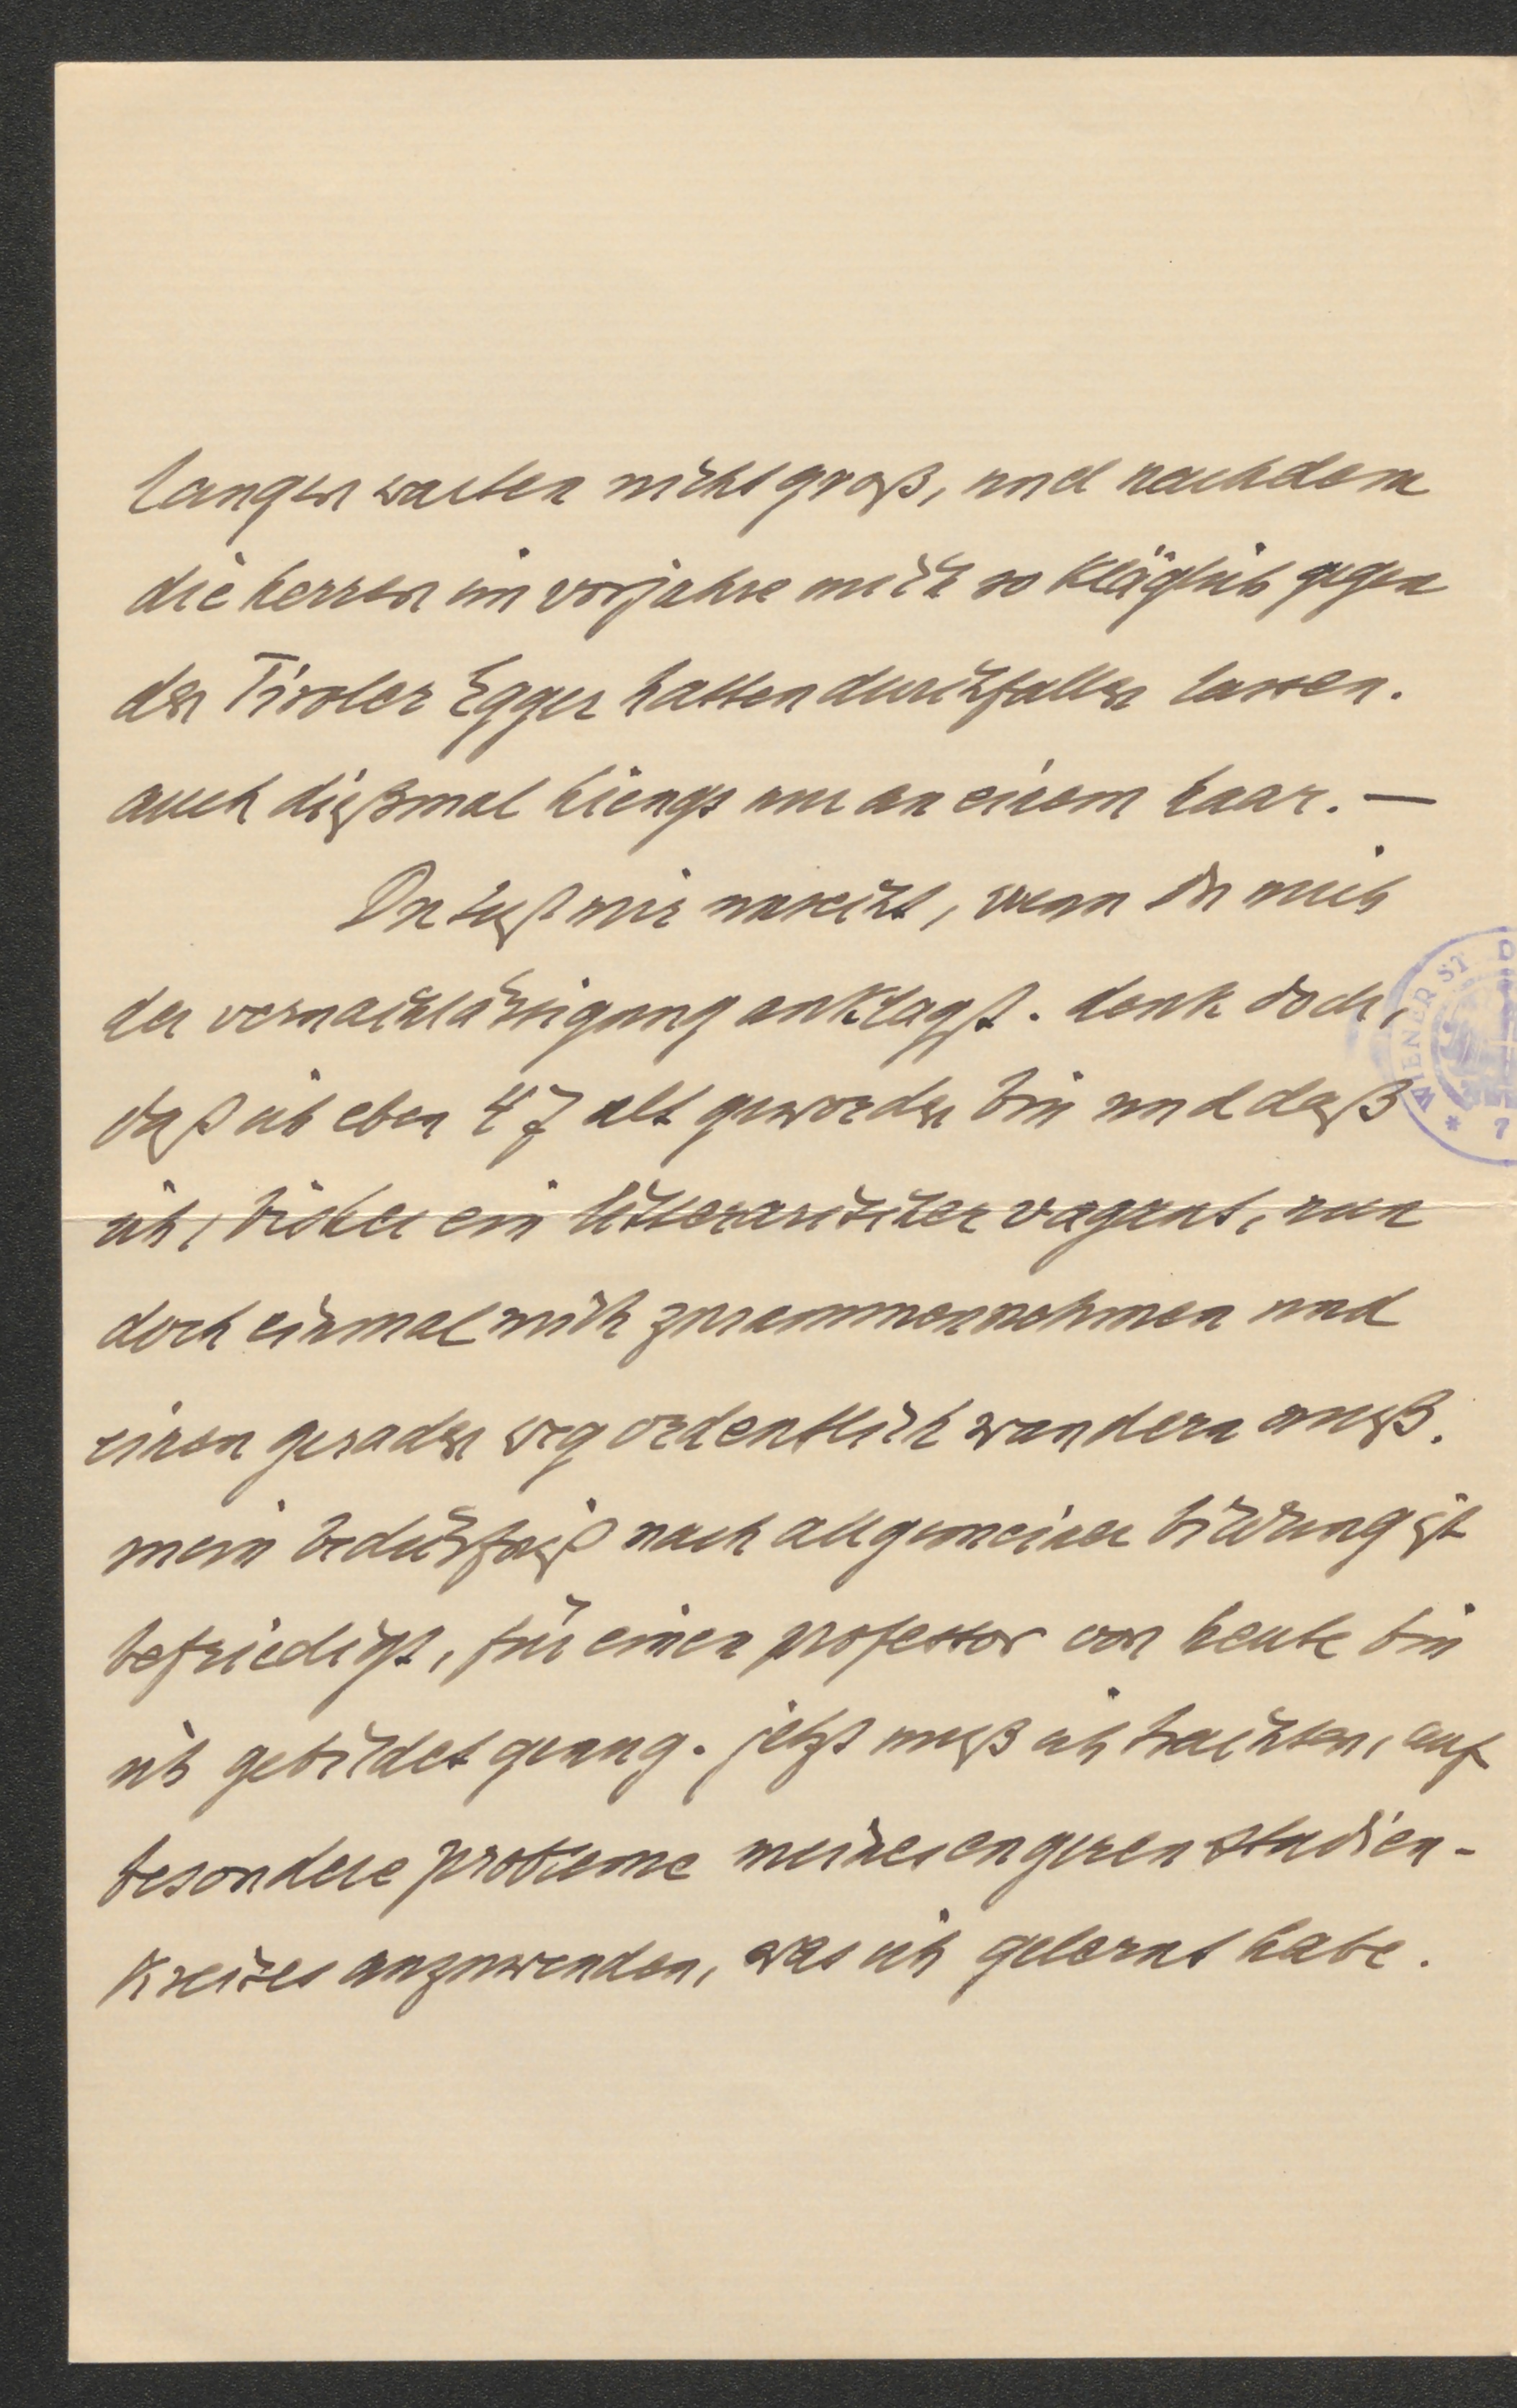 langen warten nicht groß, und nachdem
die herren im vorjahre mich so kläglich gegen
den Tiroler Egger hatten durchfallen lassen.
auch dießmal hiengs nur an einem haar. —
Du tust mir unrecht, wenn Du mich
der vernachlässigung anklagst. denk doch,
daß ich eben 47 alt geworden bin und daß
ich, bisher ein litterarischer vagant, nun
doch einmal mich zusammennehmen und
einen geraden weg ordentlich wandern muß.
mein bedürfniß nach allgemeiner bildung ist
befriedigt, für einen professor von heute bin
ich gebildet genug. jetzt muß ich trachten, auf
besondere probleme meines engeren studien-
kreises anzuwenden, was ich gelernt habe.
WIENER ST
* 7